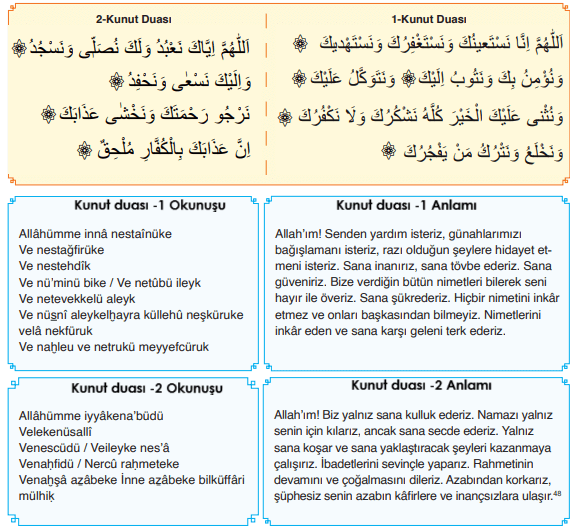 2-Kunut Duası
اَللّٰهُمَّ اِيَّاكَ نَعْبُدُ وَلَكَ نُصَلّ۪ى وَنَسْجُدُ
وَاِلَيْكَ نَسْعٰى وَنَحْفِدُ
نَرْجُو رَحْمَتَكَ وَنَخْشٰى عَذَابَكَ
اِنَّ عَذَابَكَ بِالْكُفَّارِ مُلْحِقٌ
1-Kunut Duası
اَللّٰهُمَّ اِنَّا نَسْتَع۪ينُكَ وَنَسْتَغْفِرُكَ وَنَسْتَهْد۪يكَ
وَنُؤْمِنُ بِكَ وَنَتُوبُ اِلَيْكَ وَنَتَوَكَّلُ عَلَيْكَ
وَنُثْن۪ى عَلَيْكَ الْخَيْرَ كُلَّهُ نَشْكُرُكَ وَلَا نَكْفُرُكَ
وَنَخْلَعُ وَنَتْرُكُ مَنْ يَفْجُرُكَ
Kunut duası -1 Okunuşu
Allâhümme innâ nestaînüke
Ve nestağfirüke
Ve nestehdîk
Ve nü’minü bike / Ve netûbü ileyk
Ve netevekkelü aleyk
Ve nüṣnî aleykelḫayra küllehû neşküruke
velâ nekfüruk
Ve naḫleu ve netrukü meyyefcüruk
Kunut duası -1 Anlamı
Allah’ım! Senden yardım isteriz, günahlarımızı
bağışlamanı isteriz, razı olduğun şeylere hidayet et-
meni isteriz. Sana inanırız, sana tövbe ederiz. Sana
güveniriz. Bize verdiğin bütün nimetleri bilerek seni
hayır ile överiz. Sana şükrederiz. Hiçbir nimetini inkâr
etmez ve onları başkasından bilmeyiz. Nimetlerini
inkâr eden ve sana karşı geleni terk ederiz.
Kunut duası -2 Okunuşu
Allâhümme iyyâkena’büdü
Velekenüsallî
Venescüdü / Veileyke nes’â
Venaḥfidü / Nercû raḥmeteke
Venaḫşâ aẓâbeke İnne aẓâbeke bilküffâri
mülhiḳ
Kunut duası -2 Anlamı
Allah’ım! Biz yalnız sana kulluk ederiz. Namazı yalnız
senin için kılarız, ancak sana secde ederiz. Yalnız
sana koşar ve sana yaklaştıracak şeyleri kazanmaya
çalışırız. İbadetlerini sevinçle yaparız. Rahmetinin
devamını ve çoğalmasını dileriz. Azabından korkarız,
şüphesiz senin azabın kâfirlere ve inançsızlara ulaşır.⁴⁸